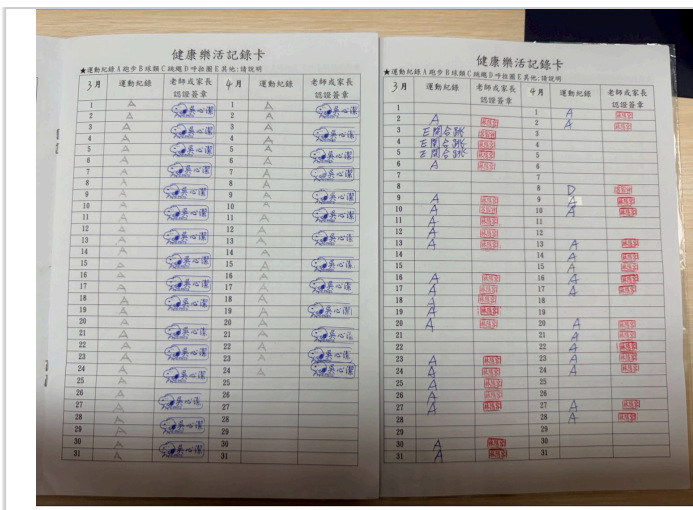 健康樂活記錄卡
★運動紀錄 A 跑步 B 球類 C 跳繩 D 呼拉圈 E 其他:請說明
3月 運動紀錄 老師或家長認證簽章 4月 運動紀錄 老師或家長認證簽章
1 A 吳心潔 1 A 吳心潔
2 A 2 A
3 A 吳心潔 3 A 吳心潔
4 A 吳心潔 4 A 吳心潔
5 A 吳心潔 5 A 吳心潔
6 A 6 A
7 A 吳心潔 7 A 吳心潔
8 A 8 A
9 A 吳心潔 9 A 吳心潔
10 A 10 A
11 A 吳心潔 11 A 吳心潔
12 A 12 A
13 A 吳心潔 13 A 吳心潔
14 A 14 A
15 A 吳心潔 15 A 吳心潔
16 A 16 A
17 A 吳心潔 17 A 吳心潔
18 A 18 A
19 A 吳心潔 19 A 吳心潔
20 A 20 A
21 A 吳心潔 21 A 吳心潔
22 A 22 A
23 A 吳心潔 23 A 吳心潔
24 A 吳心潔 24 A 吳心潔
25 A 25
26 A 26
27 A 吳心潔 27
28 A 28
29 A 吳心潔 29
30 A 30
31 A 吳心潔 31
健康樂活記錄卡
★運動紀錄 A 跑步 B 球類 C 跳繩 D 呼拉圈 E 其他:請說明
3月 運動紀錄 老師或家長認證簽章 4月 運動紀錄 老師或家長認證簽章
1 1 A
2 A 2 A
3 E 開合跳 3
4 E 開合跳 4
5 E 開合跳 5
6 A 6
7 7
8 8 D
9 A 9 A
10 A 10 A
11 A 11
12 A 12
13 A 13 A
14 14 A
15 15 A
16 A 16 A
17 A 17 A
18 A 18
19 A 19
20 A 20 A
21 21 A
22 22 A
23 A 23 A
24 A 24 A
25 A 25
26 A 26
27 A 27 A
28 28 A
29 29
30 A 30
31 A 31